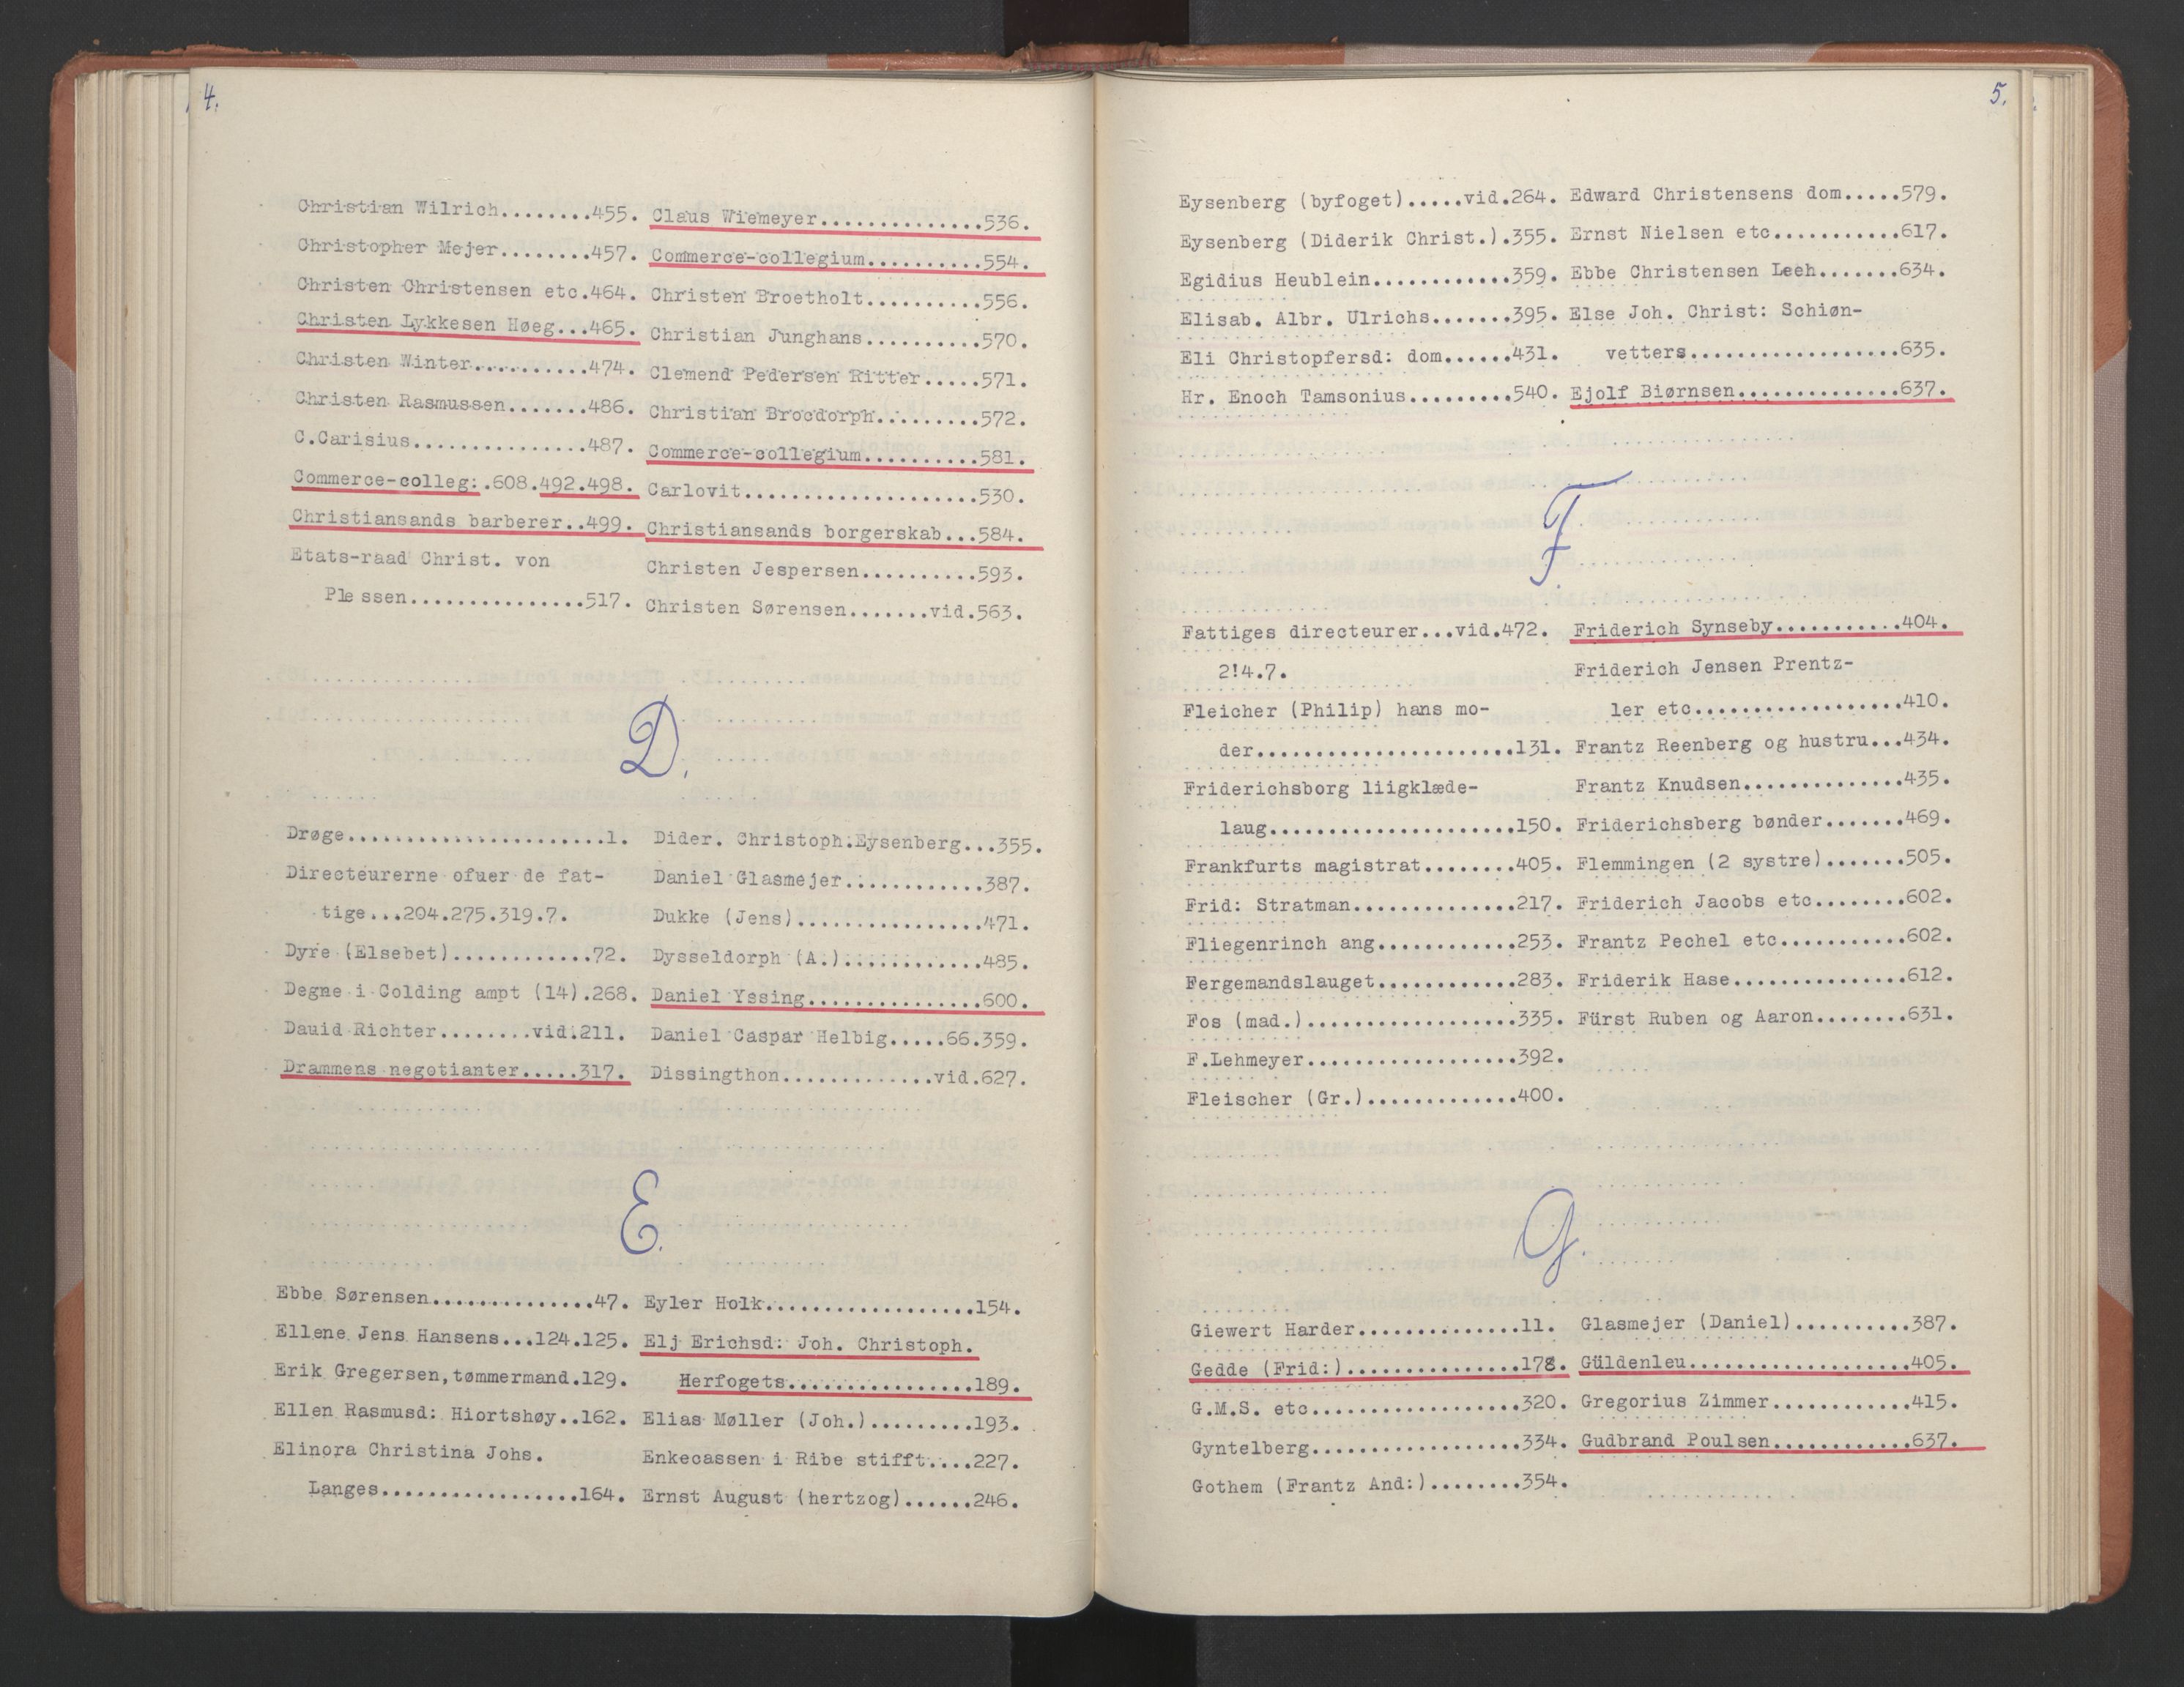 4.
Christian Wilrich........455.
Christopher Mejer........457.
Christen Christensen etc.464.
Christen Lykkesen Høeg...465.
Christen Winter..........474.
Christen Rasmussen.......486.
C.Carisius...............487.
Commerce-colleg:.608.492.498.
Christiansands barberer..499.
Etats-raad Christ. von
Plessen...............517.
Claus Wiemeyer..............536.
Commerce-collegium..........554.
Christen Broetholt..........556.
Christian Junghans..........570.
Clemend Pedersen Ritter.....571.
Christian Brocdorph.........572.
Commerce-collegium..........581.
Carlovit....................530.
Christiansands borgerskab...584.
Christen Jespersen..........593.
Christen Sørensen.......vid.563.
D.
Drøge......................1.
Directeurerne ofuer de fat-
tige...204.275.319.7.
Dyre (Elsebet)............72.
Degne i Colding ampt (14).268.
Dauid Richter........vid.211.
Drammens negotianter.....317.
Dider. Christoph.Eysenberg...355.
Daniel Glasmejer............387.
Dukke (Jens)................471.
Dysseldorph (A.)............485.
Daniel Yssing...............600.
Daniel Caspar Helbig.....66.359.
Dissingthon.............vid.627.
E.
Ebbe Sørensen..............47.
Ellene Jens Hansens...124.125.
Erik Gregersen,tømmermand.129.
Ellen Rasmusd: Hiortshøy..162.
Elinora Christina Johs.
Langes.................164.
Eyler Holk..................154.
Elj Erichsd: Joh. Christoph.
Herfogets................189.
Elias Møller (Joh.).........193.
Enkecassen i Ribe stifft....227.
Ernst August (hertzog)......246.
5.
Eysenberg (byfoget).....vid.264.
Eysenberg (Diderik Christ.).355.
Egidius Heublein............359.
Elisab. Albr. Ulrichs.......395.
Eli Christopfersd: dom......431.
Hr. Enoch Tamsonius.........540.
Edward Christensens dom.....579.
Ernst Nielsen etc...........617.
Ebbe Christensen Leeh.......634.
Else Joh. Christ: Schiøn-
vetters..................635.
Ejolf Biørnsen..............637.
F.
Fattiges directeurer...vid.472.
2!4.7.
Fleicher (Philip) hans mo-
der......................131.
Friderichsborg liigklæde-
laug.....................150.
Frankfurts magistrat........405.
Frid: Stratman..............217.
Fliegenrinch ang............253.
Fergemandslauget............283.
Fos (mad.)..................335.
F.Lehmeyer..................392.
Fleischer (Gr.).............400.
Friderich Synseby...........404.
Friderich Jensen Prentz-
ler etc..................410.
Frantz Reenberg og hustru...434.
Frantz Knudsen..............435.
Friderichsberg bønder.......469.
Flemmingen (2 systre).......505.
Friderich Jacobs etc........602.
Frantz Pechel etc...........602.
Friderik Hase...............612.
Fürst Ruben og Aaron........631.
G.
Giewert Harder..............11.
Gedde (Frid:)...............178.
G.M.S. etc..................320.
Gyntelberg..................334.
Gothem (Frantz And:)........354.
Glasmejer (Daniel)..........387.
Güldenleu...................405.
Gregorius Zimmer............415.
Gudbrand Poulsen............637.